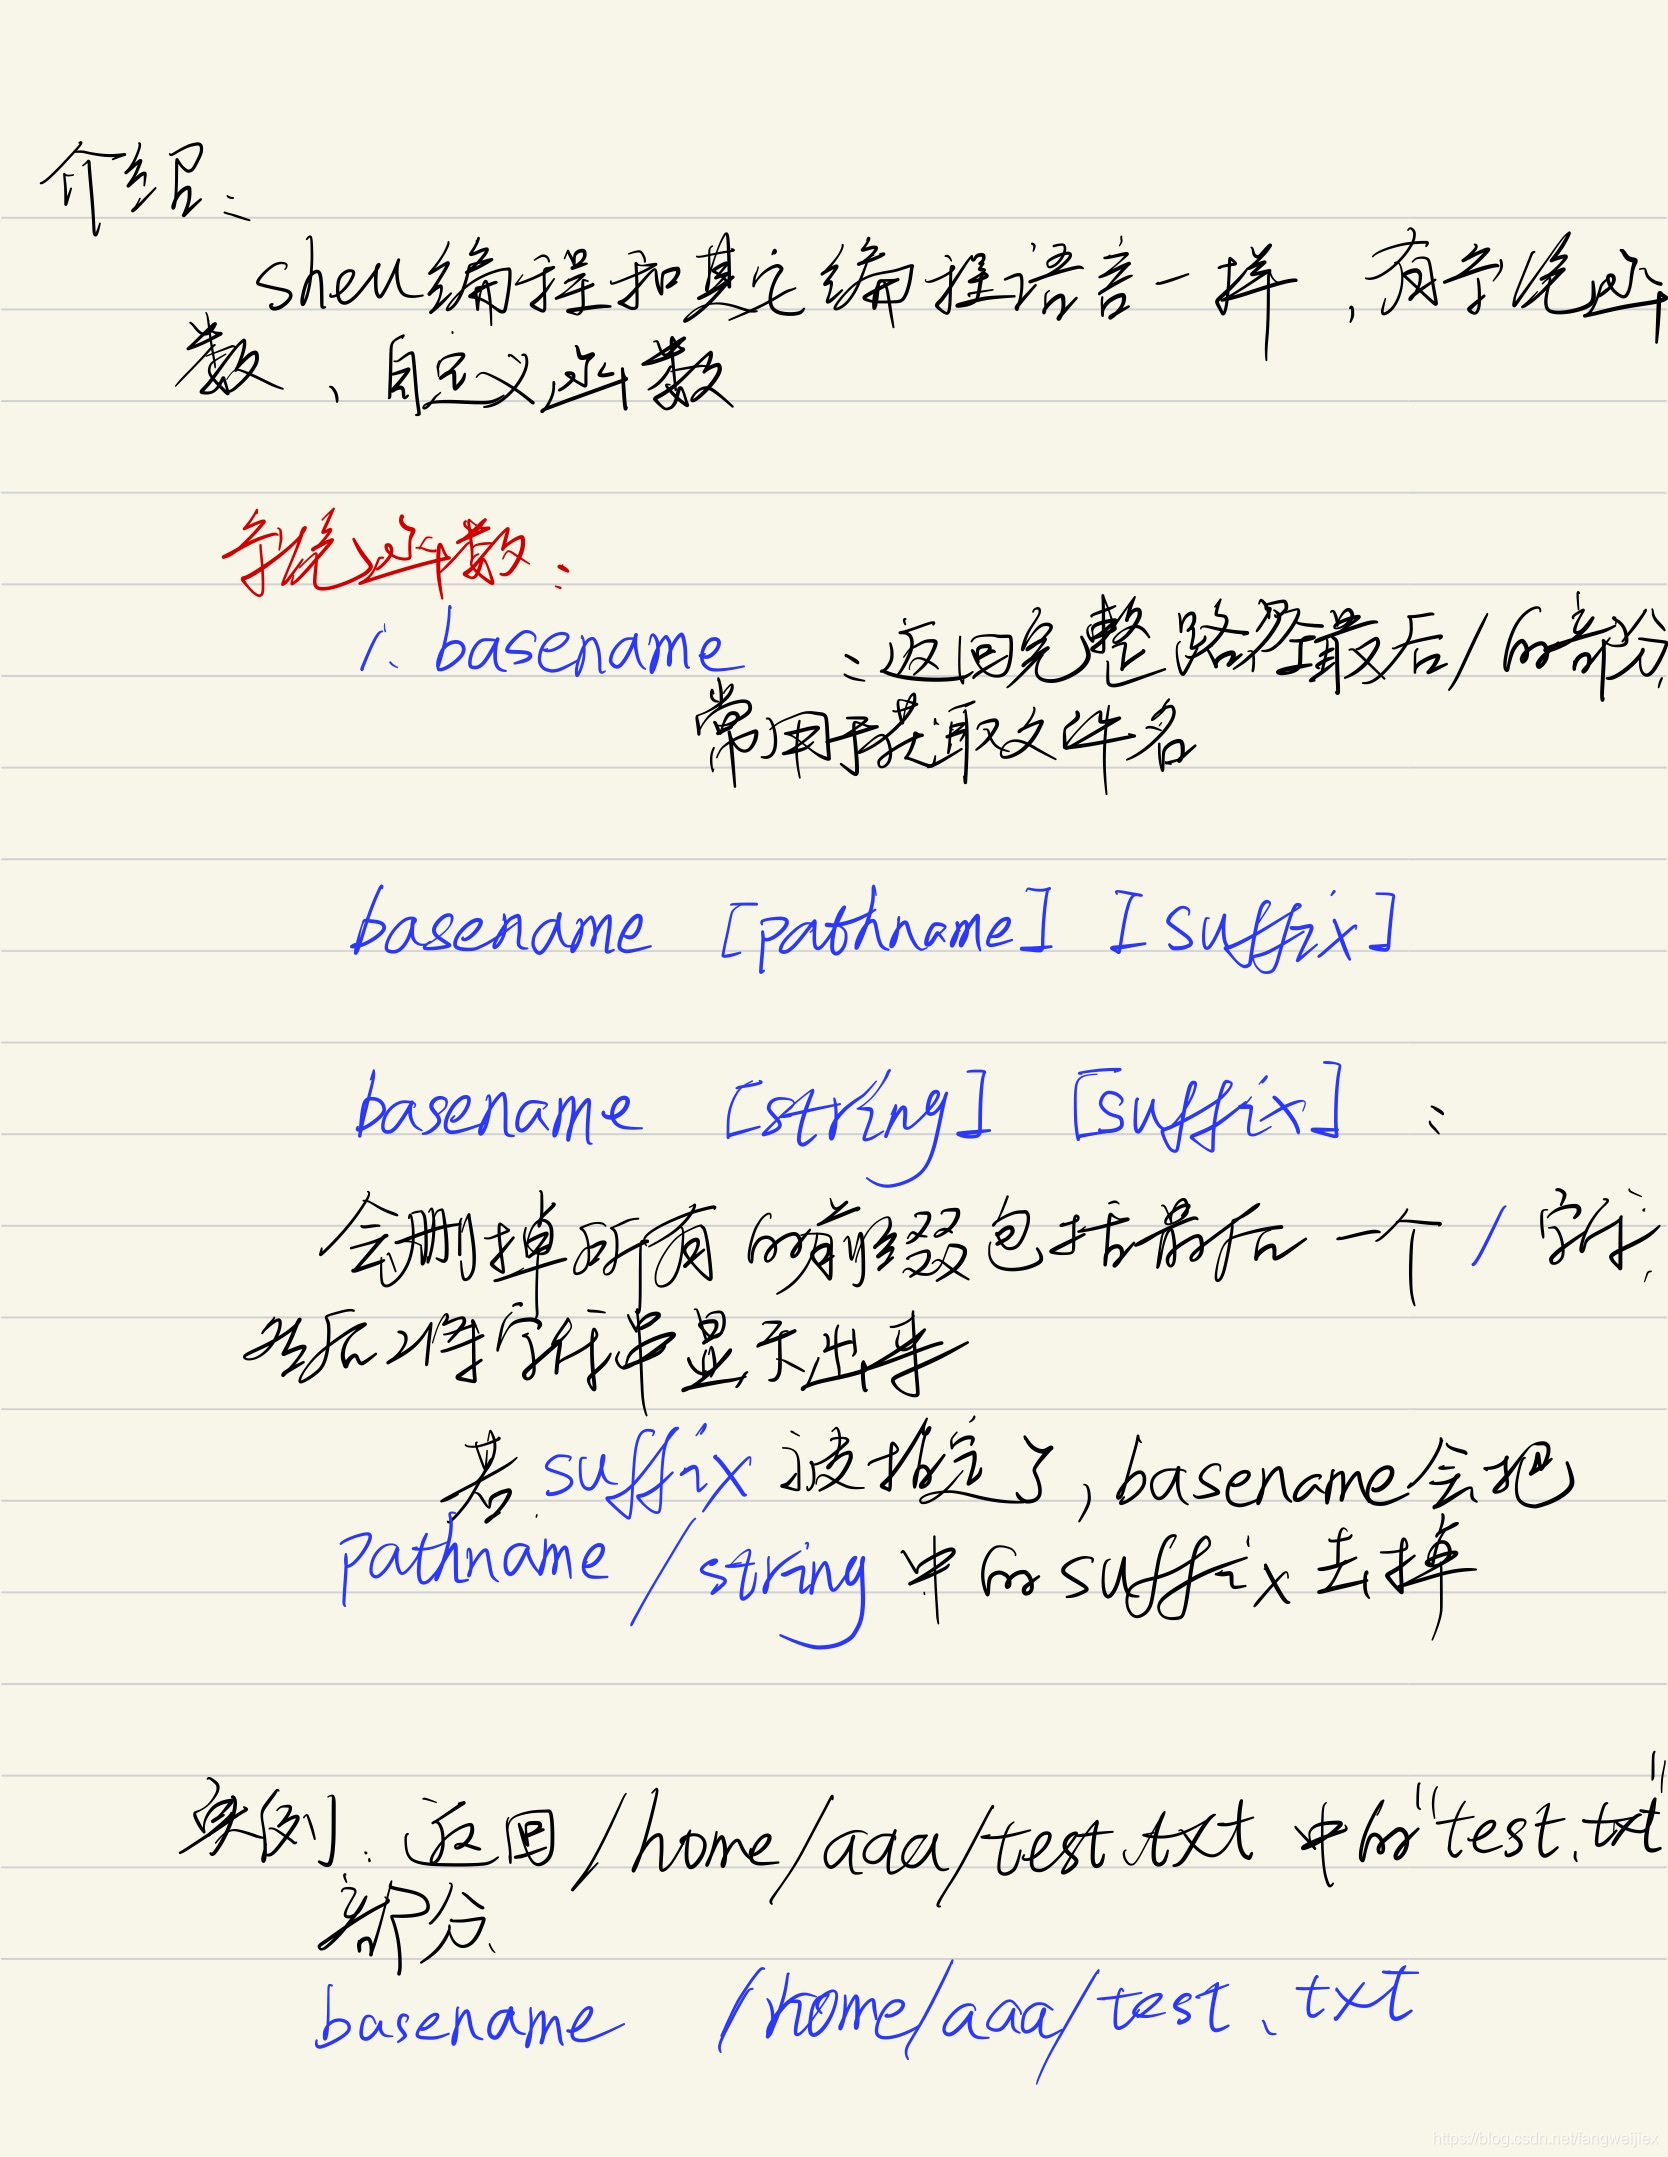 介绍：
shell编程和其它编程语言一样，有系统函
数、自定义函数
系统函数：
1、basename ：返回完整路径最后/的部分，
常用于获取文件名
basename [pathname] [suffix]
basename [string] [suffix] ：
会删掉所有的前缀包括最后一个 / 字符，
然后将字符串显示出来
若suffix被指定了，basename会把
pathname/string中的suffix去掉
实例：返回/home/aaa/test.txt 中的"test.txt"
部分
basename /home/aaa/test.txt
https://blog.csdn.net/fangweijiex